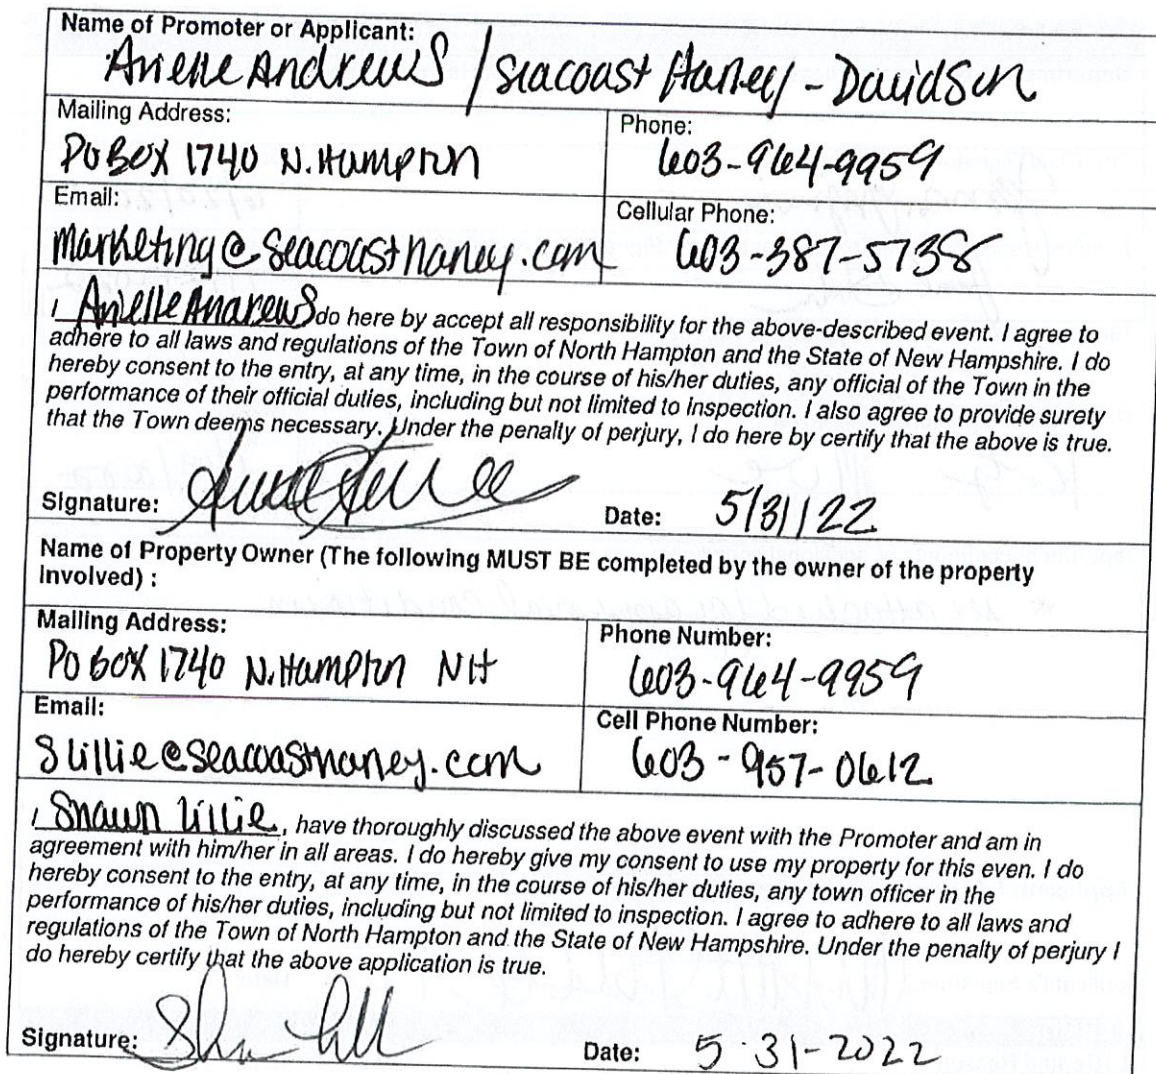 Name of Promoter or Applicant:
Arielle Andrews / Seacoast Harley-Davidson
Mailing Address:
Phone:
PO BOX 1740 N. Hampton
603-964-9959
Email:
Cellular Phone:
marketing@seacoastharley.com
603-387-5738
I Arielle Andrews do here by accept all responsibility for the above-described event. I agree to
adhere to all laws and regulations of the Town of North Hampton and the State of New Hampshire. I do
hereby consent to the entry, at any time, in the course of his/her duties, any official of the Town in the
performance of their official duties, including but not limited to inspection. I also agree to provide surety
that the Town deems necessary. Under the penalty of perjury, I do here by certify that the above is true.
Signature:
Date: 5/31/22
Name of Property Owner (The following MUST BE completed by the owner of the property
involved) :
Mailing Address:
Phone Number:
PO box 1740 N. Hampton NH
603-964-9959
Email:
Cell Phone Number:
slillie@seacoastharley.com
603-957-0612
I Shawn Lillie, have thoroughly discussed the above event with the Promoter and am in
agreement with him/her in all areas. I do hereby give my consent to use my property for this even. I do
hereby consent to the entry, at any time, in the course of his/her duties, any town officer in the
performance of his/her duties, including but not limited to inspection. I agree to adhere to all laws and
regulations of the Town of North Hampton and the State of New Hampshire. Under the penalty of perjury I
do hereby certify that the above application is true.
Signature:
Date: 5-31-2022